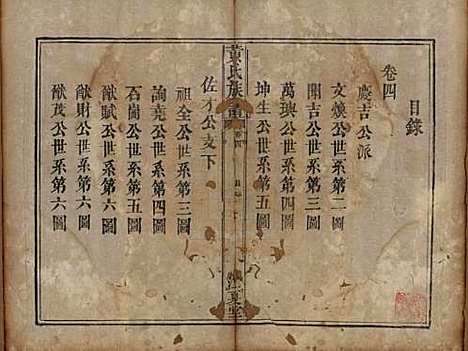 目錄
卷四
慶吉公派
文煥公世系第二圖
開吉公世系第三圖
萬璵公世系第四圖
坤生公世系第五圖
黃氏族譜
卷四
目錄
江夏堂
佐才公支下
祖全公世系第三圖
詢堯公世系第四圖
石崗公世系第五圖
猷賦公世系第六圖
猷財公世系第六圖
猷茂公世系第六圖